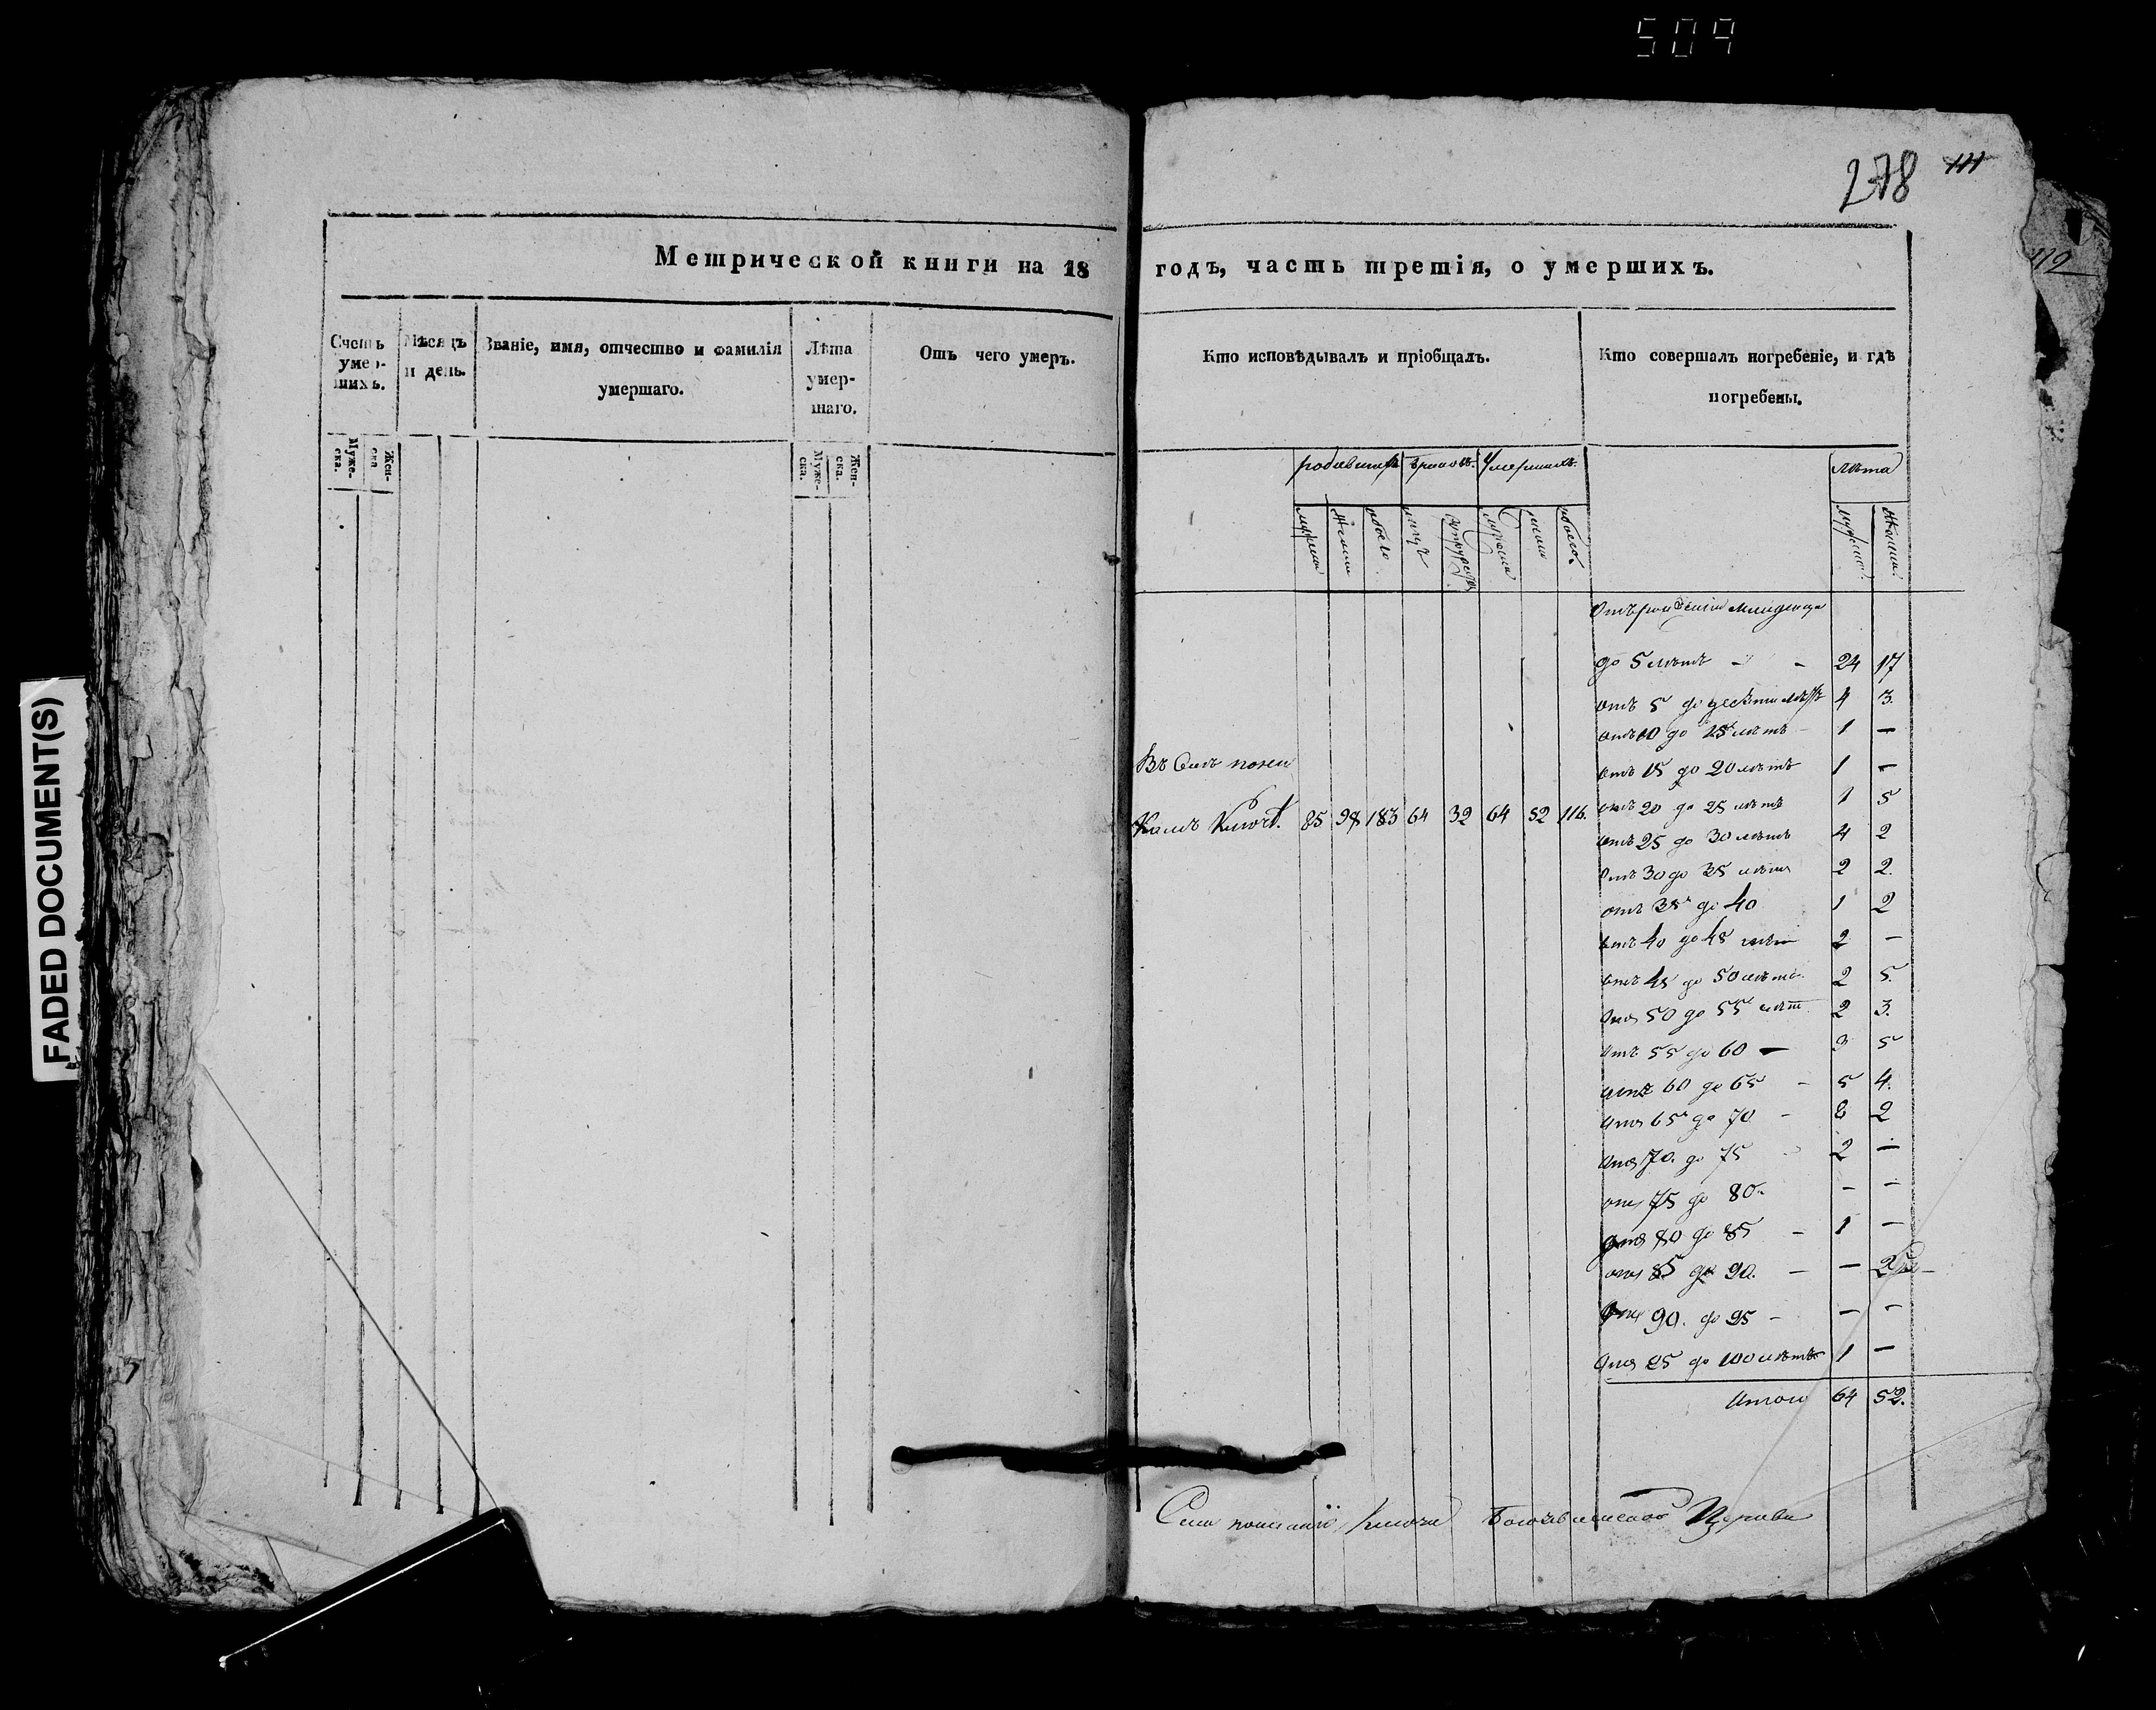 509
278 111
112
FADED DOCUMENT(S)
Метрической книги на 18 годъ, часть третія, о умершихъ.
Счетъ умер-шихъ.
Мѣсяцъ и день.
Званіе, имя, отчество и фамилія умершаго.
Лѣта умер-шаго.
Отъ чего умеръ.
Кто исповѣдывалъ и пріобщалъ.
Кто совершалъ погребеніе, и гдѣ погребены.
Муже-ска.
Жен-ска.
Муже-ска.
Жен-ска.
родившихъ браковъ. Умершихъ. лѣта
обоего
обоего.
Отъ рожденія младенца
до 5 лѣтъ - - 24 17
отъ 5 до десяти лѣтъ 4 3.
отъ 10 до 15 лѣтъ - 1 -
отъ 15 до 20 лѣтъ 1 -
Въ Селѣ
85 98 183 64 32 64 52 116.
отъ 20 до 25 лѣтъ 1 5
отъ 25 до 30 лѣтъ 4 2
отъ 30 до 35 лѣтъ 2 2.
отъ 35 до 40 1 2
отъ 40 до 45 лѣтъ 2 -
отъ 45 до 50 лѣтъ 2 5.
отъ 50 до 55 лѣтъ 2 3.
отъ 55 до 60 - 3 5
отъ 60 до 65 - 5 4.
отъ 65 до 70 - 8 2
отъ 70. до 75 - 2 -
отъ 75 до 80. - -
отъ 80 до 85 - 1 -
отъ 85 до 90. - - 2
отъ 90. до 95 - - -
отъ 95 до 100 лѣтъ 1 -
Итого 64 52.
Села Ключи Церкви